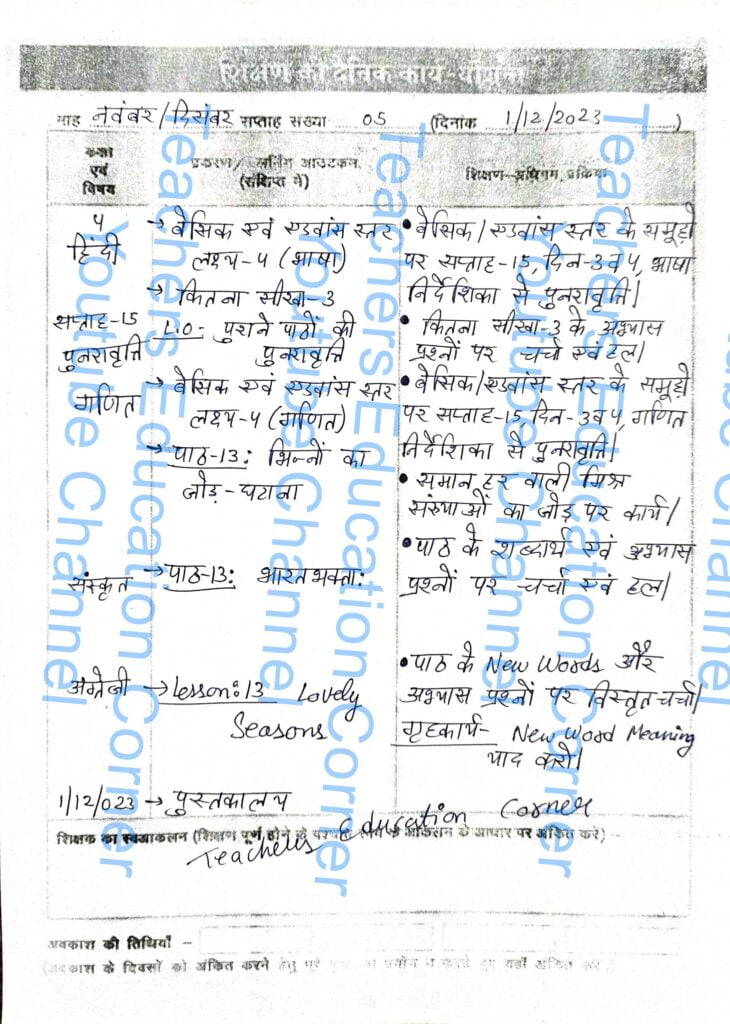 शिक्षण की दैनिक कार्य-योजना
माह नवंबर/दिसंबर सप्ताह संख्या 05 (दिनांक 1/12/2023)
कक्षा एवं विषय
प्रकरण/ लर्निंग आउटकम (संक्षिप्त में)
शिक्षण-अधिगम प्रक्रिया
५
हिंदी
सप्ताह-15
पुनरावृत्ति
→ बेसिक एवं एडवांस स्तर
लक्ष्य-५ (भाषा)
→ कितना सीखा-3
L.O- पुराने पाठों की
पुनरावृत्ति
• बेसिक/एडवांस स्तर के समूहों
पर सप्ताह-15, दिन-3व५, भाषा
निर्देशिका से पुनरावृत्ति।
• कितना सीखा-3 के अभ्यास
प्रश्नों पर चर्चा एवं हल।
गणित
→ बेसिक एवं एडवांस स्तर
लक्ष्य-५ (गणित)
→ पाठ-13: भिन्नों का
जोड़-घटाना
• बेसिक/एडवांस स्तर के समूहों
पर सप्ताह-15, दिन-3व५, गणित
निर्देशिका से पुनरावृत्ति।
• समान हर वाली मिश्र
संख्याओं का जोड़ पर कार्य।
संस्कृत
→ पाठ-13: भारतभक्ताः
• पाठ के शब्दार्थ एवं अभ्यास
प्रश्नों पर चर्चा एवं हल।
अंग्रेजी
→ Lesson: 13 Lovely
Seasons
• पाठ के New Words और
अभ्यास प्रश्नों पर विस्तृत चर्चा।
गृहकार्य- New Word Meaning
याद करो।
1/12/023 → पुस्तकालय
Teachers Education Corner
शिक्षक का स्वआकलन (शिक्षण पूर्ण होने के पश्चात के आकलन के आधार पर अंकित करें)
अवकाश की तिथियाँ -
(अवकाश के दिवसों को अंकित करने हेतु पूरे प्रयोग न करते हुए यहाँ अंकित करें)
Teachers Education Corner
Youtube Channel
Teachers Education Corner
Youtube Channel
Teachers Education Corner
Youtube Channel